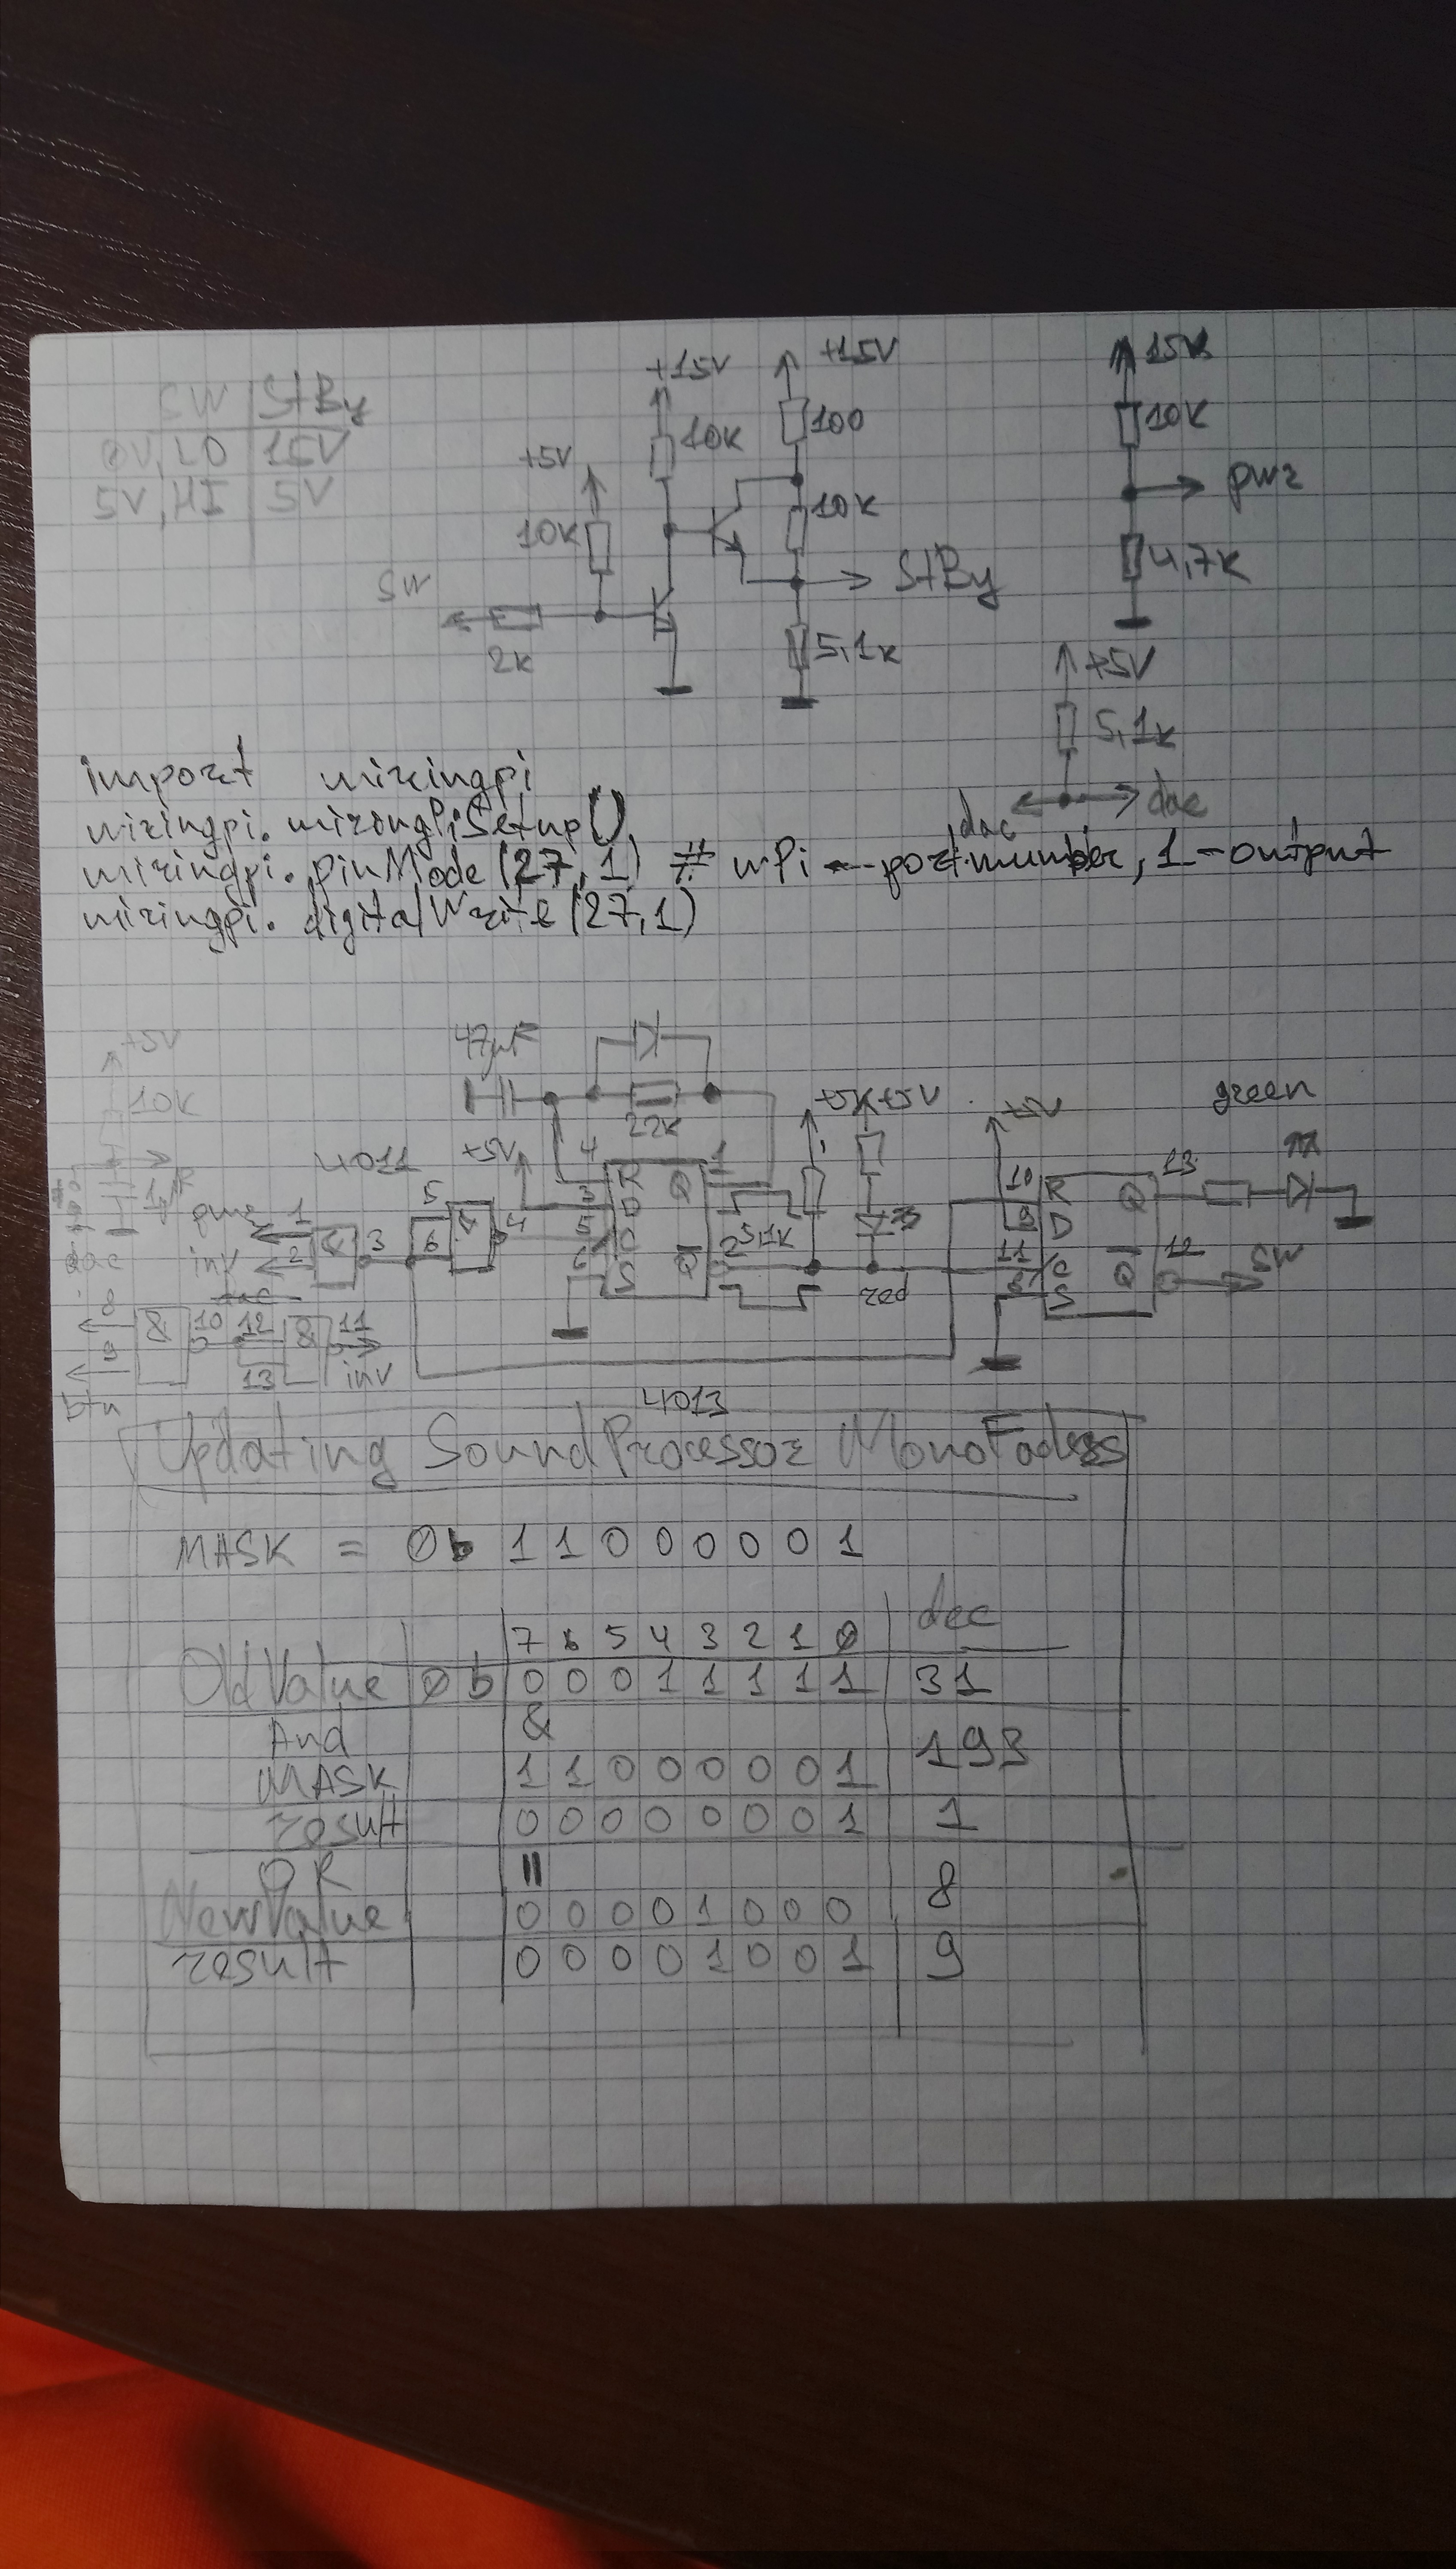 SW | StBy
0V, LO | 15V
5V, HI | 5V
+15V
+15V
10K
100
+5V
10K
10K
SW
2K
StBy
5,1K
15V
10K
pwr
4,7K
+5V
5,1K
dac
dac
import wiringpi
wiringpi.wiringPiSetup()
wiringpi.pinMode(27,1) # wPi - port number, 1 - output
wiringpi.digitalWrite(27,1)
+5V
10K
1µF
dac
47µF
22K
4011
+5V
pwr 1
inv 2
3
5
6
4
4 R Q 1
3 D
5 C
6 S Q 2
5,1K
+5V
red
+5V
10 R Q 13
9 D
11 C Q 12
8 S
green
SW
8
9
&
10
12
13
&
11
inv
btn
4013
Updating SoundProcessor MonoFaders
MASK = 0b 1 1 0 0 0 0 0 1
7 6 5 4 3 2 1 0 dec
Old Value 0b 0 0 0 1 1 1 1 1 31
And &
MASK 1 1 0 0 0 0 0 1 193
result 0 0 0 0 0 0 0 1 1
OR ||
NewValue 0 0 0 0 1 0 0 0 8
result 0 0 0 0 1 0 0 1 9